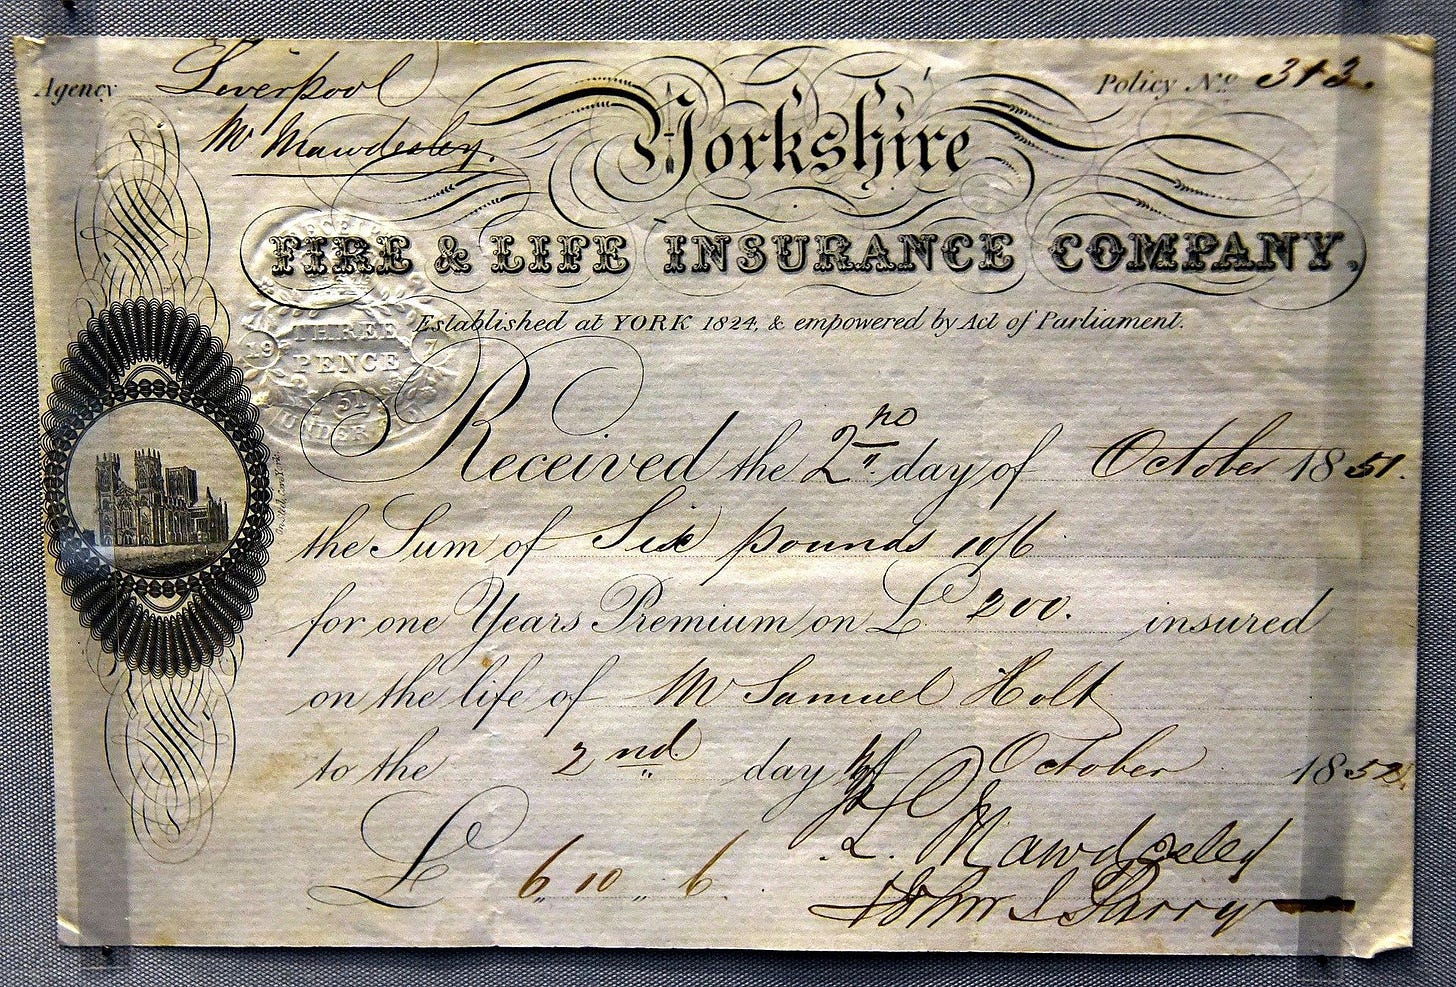 Agency Liverpool
Mr Mawdesley.
Policy No. 313.
Yorkshire
FIRE & LIFE INSURANCE COMPANY,
Established at YORK 1824, & empowered by Act of Parliament.
THREE
PENCE
UNDER
Received the 2nd day of October 1851.
the Sum of Six pounds 10/6
for one Years Premium on £ 200. insured
on the life of Mr Samuel Holt
to the 2nd day of October 1852
L. Mawdesley
£ 6 10 6
John Parry